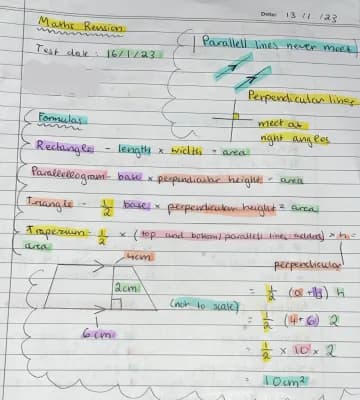 Maths Revision
Date: 13/1/23
Test date: 16/1/23
Parallell lines never meet
Perpendicular lines
meet at
right angles
Formulas
Rectangle - length x width = area
Parallellogram - base x perpendicular height = area
Triangle - 1/2 base x perpendicular height = area
Trapezium - 1/2 x (top and bottom/parallell lines added) x h =
area
perpendicular
4cm
2cm
6cm
(not to scale)
= 1/2 (a+b) h
= 1/2 (4+6) 2
= 1/2 x 10 x 2
= 10cm²